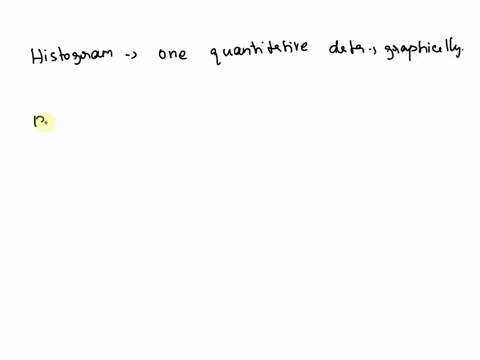 Histogram -> one quantitative data., graphically.
p.